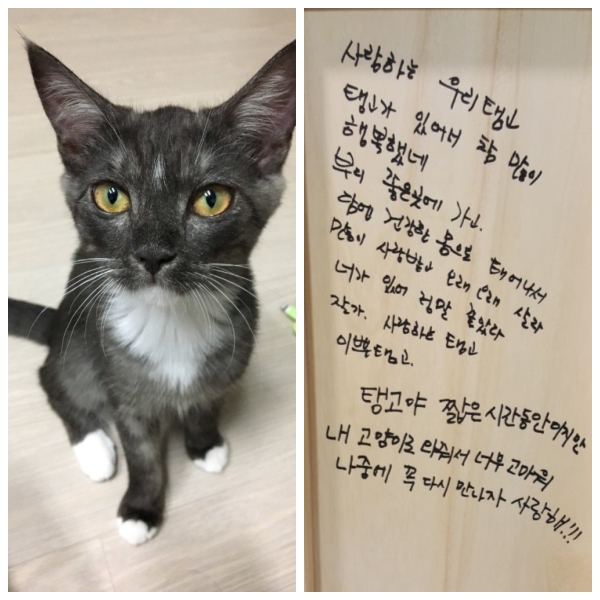 사랑하는 우리 탱고
탱고가 있어서 참 많이
행복했네
부디 좋은곳에 가고.
담에 건강한 몸으로 태어나서
많이 사랑받고 오래 오래 살라
너가 있어 정말 좋았라
잘가. 사랑하는 탱고
이쁜탱고.
탱고야 짧은 시간동안이지만
내 고양이로 와줘서 너무 고마워
나중에 꼭 다시 만나자 사랑해!!!